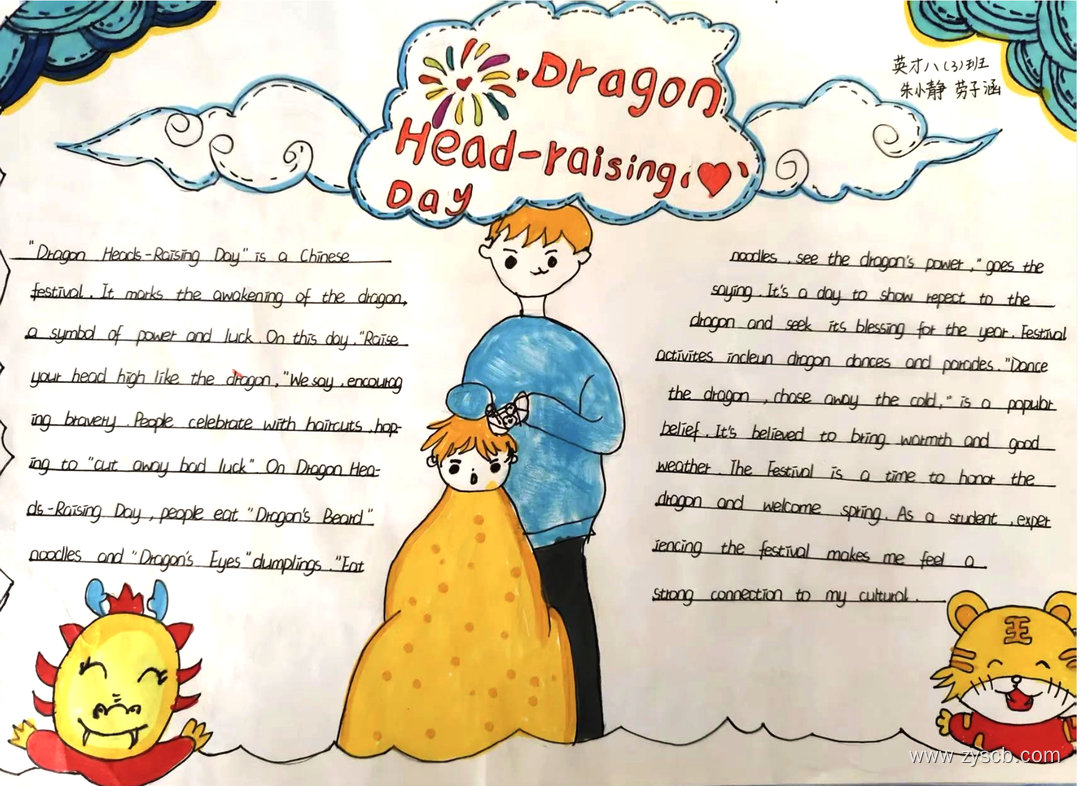 Dragon
Head-raising
Day
英才八(3)班
朱小静 劳子涵
"Dragon Heads-Raising Day" is a Chinese
festival. It marks the awakening of the dragon,
a symbol of power and luck. On this day. "Raise
your head high like the dragon," We say, encourag
ing bravery. People celebrate with haircuts, hop-
ing to "cut away bad luck" On Dragon Hea-
ds-Raising Day, people eat "Dragon's Beard"
noodles and "Dragon's Eyes" dumplings. "Eat
noodles, see the dragon's power," goes the
saying. It's a day to show repect to the
dragon and seek its blessing for the year. Festival
activites incleun dragon dances and parades. "Dance
the dragon, chase away the cold," is a popular
belief. It's believed to bring warmth and good
weather. The Festival is a time to honor the
dragon and welcome spring. As a student, exper
iencing the festival makes me feel a
strong connection to my cultural.
王
www.zyscb.com